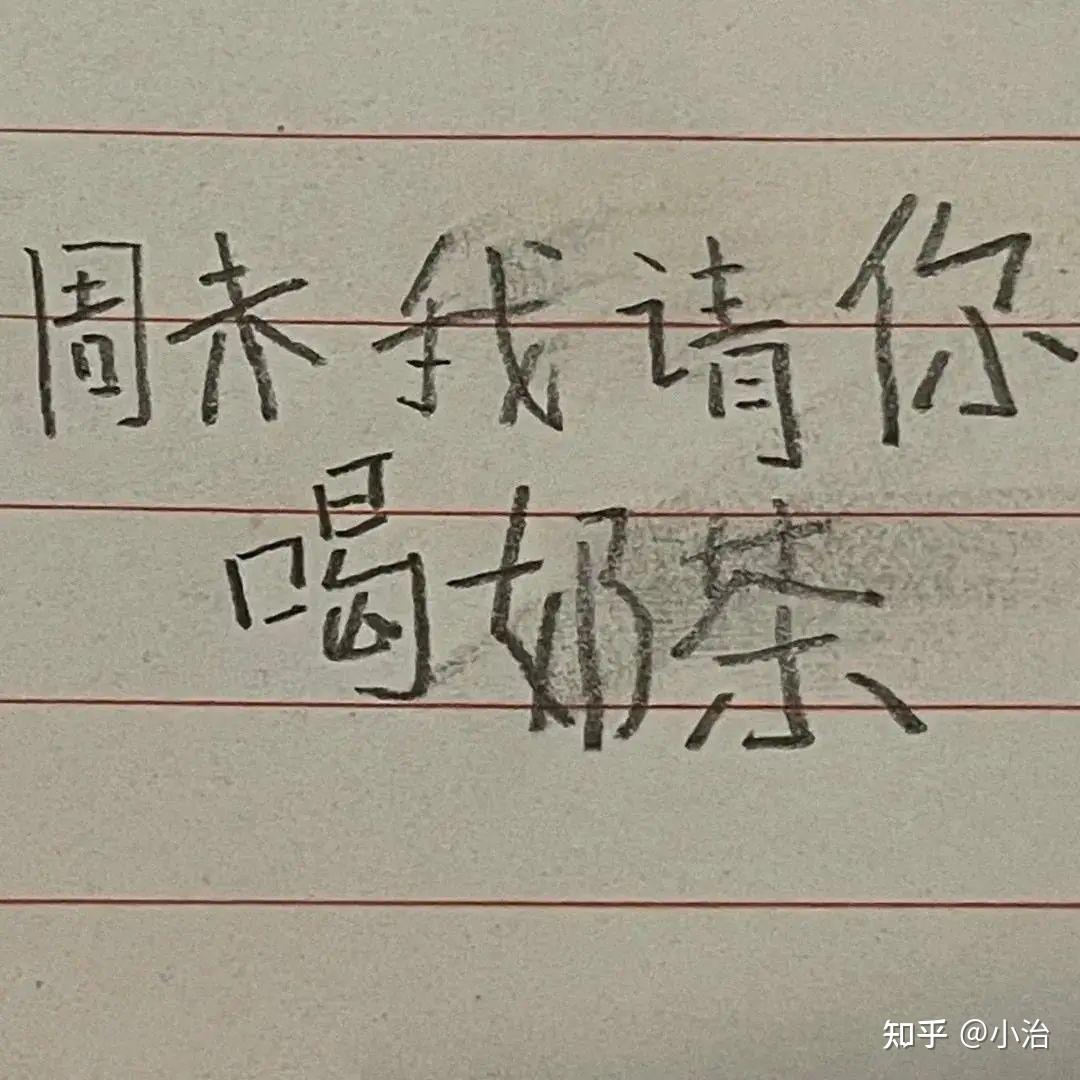 周末我请你
喝奶茶
知乎 @小治